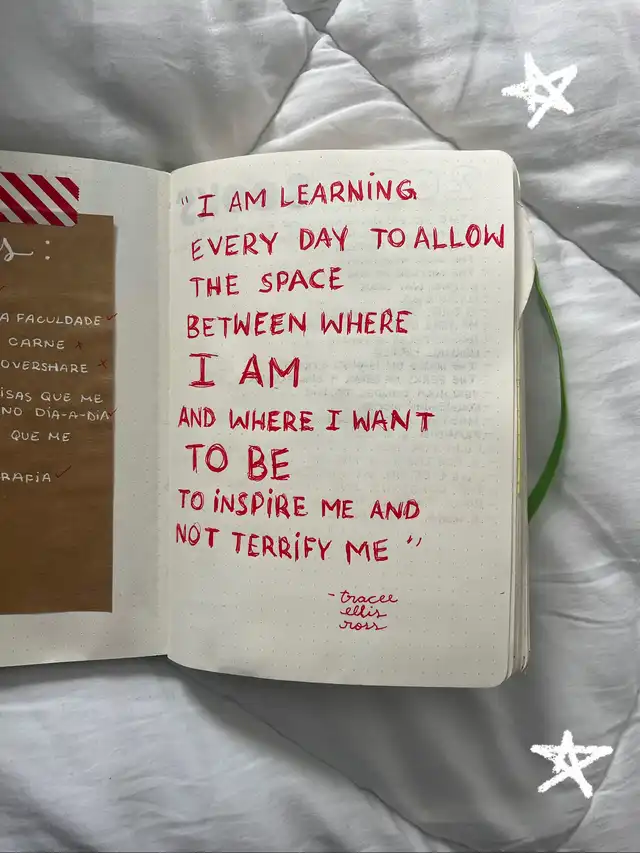 s :
A FACULDADE ✓
CARNE x
OVERSHARE x
ISAS QUE ME
NO DÍA-A-DÍA ✓
QUE ME
RAFIA ✓
"I AM LEARNING
EVERY DAY TO ALLOW
THE SPACE
BETWEEN WHERE
I AM
AND WHERE I WANT
TO BE
TO INSPIRE ME AND
NOT TERRIFY ME"
- tracee
ellis
ross